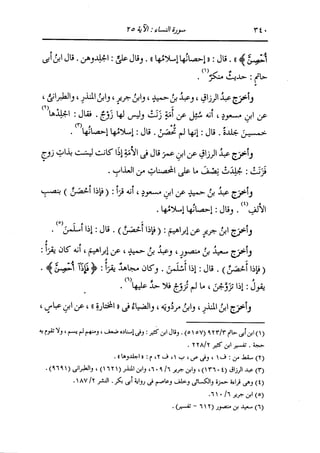 ٣٤٠ سورة النساء : الآية ٢٥
أُحْصِنَّ ﴾ » . قال : « إحصانُها إسلامُها » . وقال عليٌّ : اجلِدوهن . قال ابنُ أبى
حاتمٍ : حديثٌ منكرٌ (١) .
وأخرَج عبدُ الرزاقِ ، وعبدُ بنُ حميدٍ ، وابنُ جريرٍ ، وابنُ المنذرِ ، والطبرانىُّ ،
عن ابنِ مسعودٍ ، أنه سُئِل عن أمَةٍ زَنَتْ وليس لها زَوْجٌ . فقال : اجلِدْها (٢)
خمسين جلدةً . قال : إنها لم تُحْصَنْ . قال : إسلامُها إحصانُها (٣) .
وأخرَج عبدُ الرزاقِ عن ابنِ عمرَ قال فى الأمَةِ إذا كانت ليست بذاتِ زوجٍ
فزَنَتْ : جُلِدَتْ نِصْفَ ما على المحصناتِ من العذابِ .
وأخرَج عبدُ بنُ حميدٍ عن ابنِ مسعودٍ ، أنه قرَأ : ( فإذا أَحْصَنَّ ) بنصبِ
الألفِ (٤) . وقال : إحصانُها إسلامُها .
وأخرَج ابنُ جريرٍ عن إبراهيمَ : ( فإذا أَحْصَنَّ ) . قال : إذا أسلَمْن (٥) .
وأخرَج سعيدُ بنُ منصورٍ ، وعبدُ بنُ حميدٍ ، عن إبراهيمَ ، أنه كان يقرَأُ :
( فإذا أَحْصَنَّ ) . قال : إذا أسلَمْن . وكان مجاهدٌ يقرَأُ : ﴿ فَإِذَآ أُحْصِنَّ ﴾ .
يقولُ : إذا تزوَّجْن ، ما لم تُزوَّجْ فلا حدَّ عليها (٦) .
وأخرَج ابنُ المنذرِ ، وابنُ مردُويَه ، والضياءُ فى « المختارةِ » ، عن ابنِ عباسٍ ،
(١) ابن أبى حاتم ٩٢٣/٣ (٥١٥٧) . وقال ابن كثير : وفى إسناده ضعف ، ومنهم لم يسم ، ولا تقوم به
حجة . تفسير ابن كثير ٢٢٨/٢ .
(٢) سقط من : ف ١ ، وفى ص ، ب ١ ، ف ٢ ، م : « اجلدوها » .
(٣) عبد الرزاق (١٣٦٠٤) ، وابن جرير ٦٠٩/٦ ، وابن المنذر (١٦٢١) ، والطبرانى (٩٦٩١) .
(٤) وهى قراءة حمزة والكسائى وخلف وعاصم فى رواية أبى بكر . النشر ١٨٧/٢ .
(٥) ابن جرير ٦١٠/٦ .
(٦) سعيد بن منصور (٦١٢ - تفسير) .